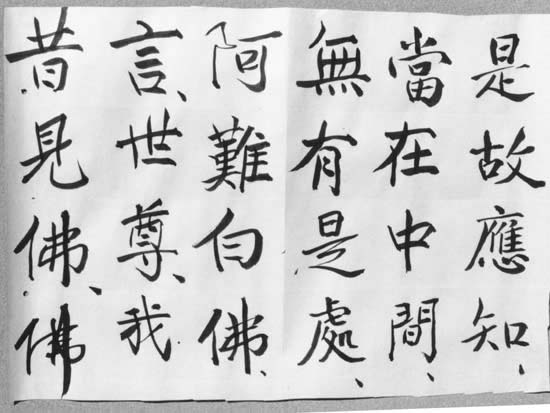 是故應知、
當在中間、
無有是處、
阿難白佛、
言、世尊、我
昔見佛、佛